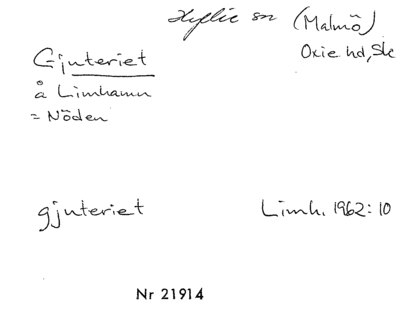 Hyllie sn (Malmö)
Oxie hd, Sk
Gjuteriet
å Limhamn
= Nöden
gjuteriet Limh. 1962:10
Nr 21914